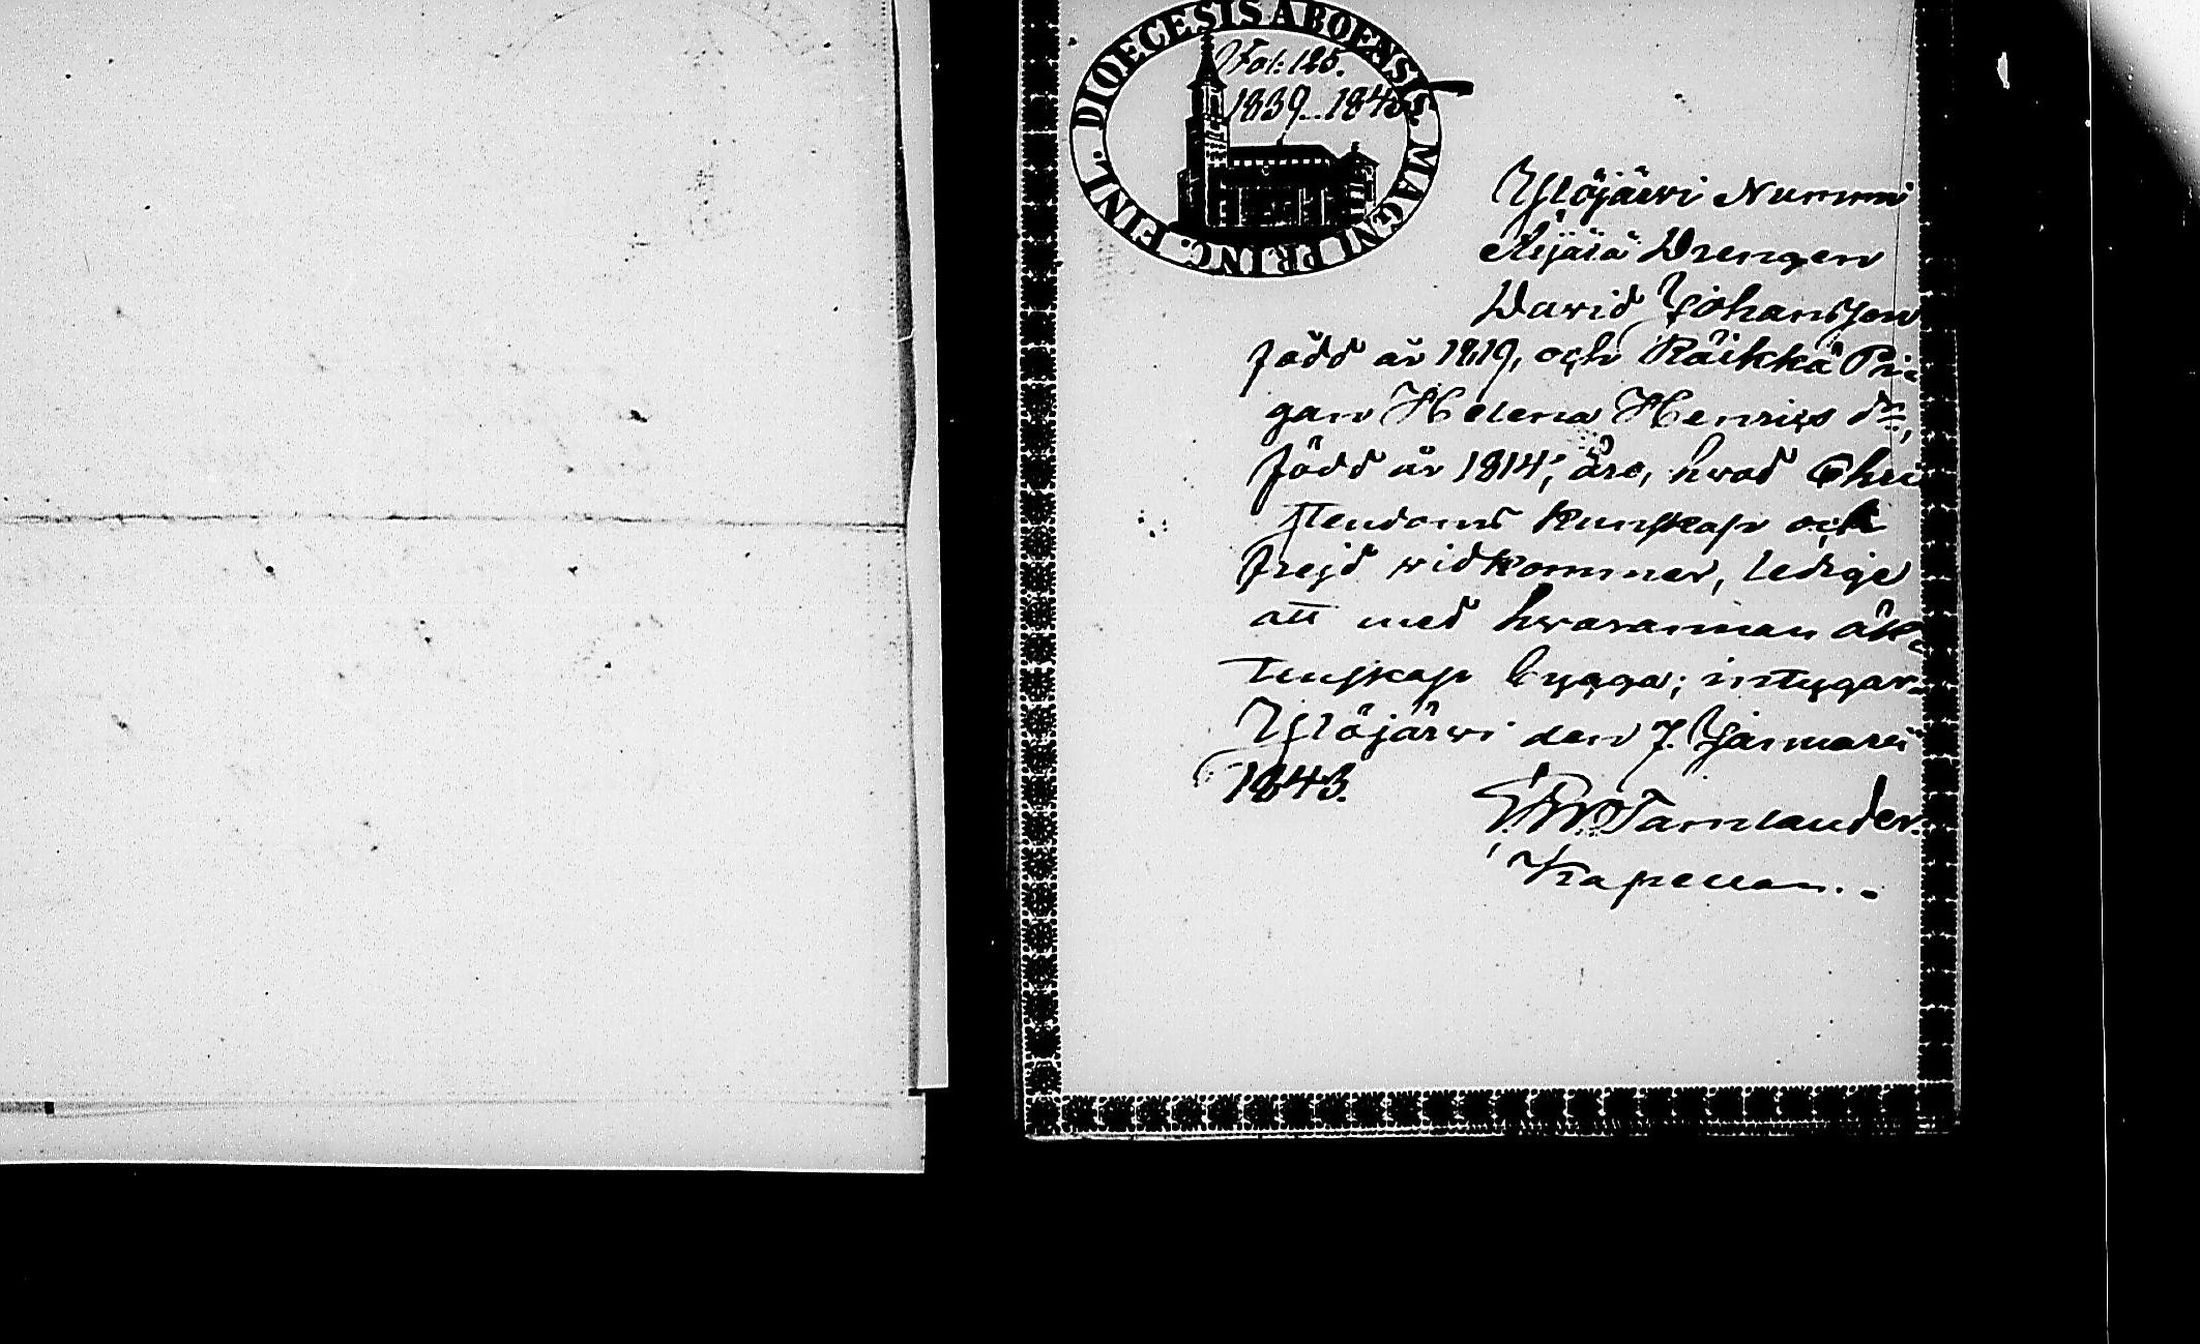 DIOECESIS ABOENSIS MAGNI PRINC. FINL.
Fol: 125.
1839..1845.
Ylöjärvi Nummi
Äijälä Drengen
David Johansson
född år 1819, och Räikkä Pi-
gan Helena Henrics dr,
född år 1814, äro, hvad Chri
stendoms kunskap och
frejd widkommer, ledige
att med hvarannan äk-
tenskap bygga; intygar.
Ylöjärvi den 7. Januarii
1843.
Tamlander.
Kapellan.